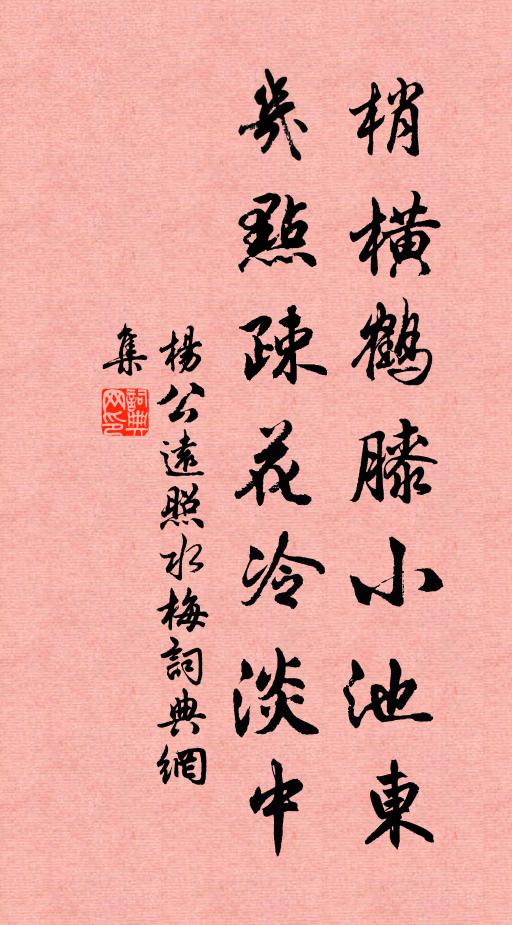 梢橫鶴膝小池東
幾點疎花冷淡中
楊公遠照水梅詞典網
集
詞典網印